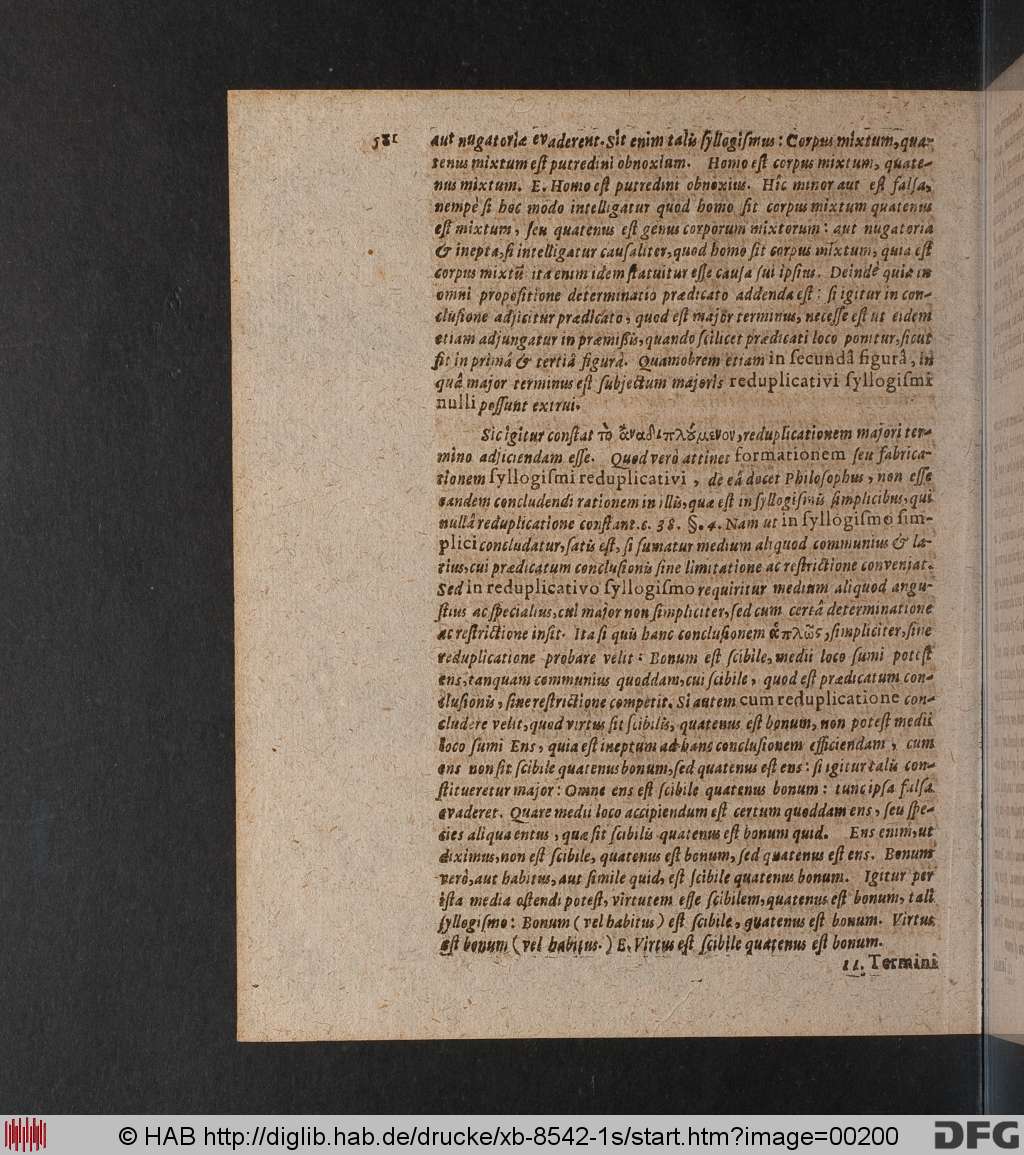 581 aut nugatoriæ evaderent. Sit enim talis ſyllogiſmus: Corpus mixtum, qua-
tenus mixtum eſt putredini obnoxium. Homo eſt corpus mixtum, quate-
nus mixtum. E. Homo eſt putredini obnoxius. Hîc minor aut eſt falſa,
nempè ſi hoc modo intelligatur quod homo ſit corpus mixtum quatenus
eſt mixtum, ſeu quatenus eſt genus corporum mixtorum: aut nugatoria
& inepta, ſi intelligatur cauſaliter, quod homo ſit corpus mixtum, quia eſt
corpus mixtũ ita enim idem ſtatuitur eſſe cauſa ſui ipſius. Deindè quia in
omni propoſitione determinatio prædicato addenda eſt: ſi igitur in con-
cluſione adjicitur prædicato, quod eſt major terminus, neceſſe eſt ut eidem
etiam adjungatur in præmiſſis, quando ſcilicet prædicati loco ponitur, ſicut
fit in primâ & tertiâ figurâ. Quamobrem etiam in ſecundâ figurâ, in
quâ major terminus eſt ſubjectum majoris reduplicativi ſyllogiſmi
nulli poſſunt extrui.
Sic igitur conſtat τὸ ἀναδιπλούμενον, reduplicationem majori ter-
mino adjiciendam eſſe. Quod verò attinet formationem ſeu fabrica-
tionem ſyllogiſmi reduplicativi, de eâ docet Philoſophus, non eſſe
eandem concludendi rationem in illis, quæ eſt in ſyllogiſmis ſimplicibus, qui
nullâ reduplicatione conſtant. c. 38. §. 4. Nam ut in ſyllogiſmo ſim-
plici concludatur, ſatis eſt, ſi ſumatur medium aliquod communius & la-
tius, cui prædicatum concluſionis ſine limitatione ac reſtrictione conveniat.
Sed in reduplicativo ſyllogiſmo requiritur medium aliquod angu-
ſtius ac ſpecialius, cui major non ſimpliciter, ſed cum certâ determinatione
ac reſtrictione inſit. Ita ſi quis hanc concluſionem ἁπλῶς, ſimpliciter, ſine
reduplicatione probare velit: Bonum eſt ſcibile, medii loco ſumi poteſt
ens, tanquam communius quoddam, cui ſcibile, quod eſt prædicatum con-
cluſionis, ſine reſtrictione competit. Si autem cum reduplicatione con-
cludere velit, quod virtus ſit ſcibilis, quatenus eſt bonum, non poteſt medii
loco ſumi Ens, quia eſt ineptum ad hanc concluſionem efficiendam, cum
ens non ſit ſcibile quatenus bonum, ſed quatenus eſt ens: ſi igitur talis con-
ſtitueretur major: Omne ens eſt ſcibile quatenus bonum: tunc ipſa falſa
evaderet. Quare medii loco accipiendum eſt certum quoddam ens, ſeu ſpe-
cies aliqua entus, quæ ſit ſcibilis quatenus eſt bonum quid. Ens enim, ut
diximus, non eſt ſcibile, quatenus eſt bonum, ſed quatenus eſt ens. Bonum
verò, aut habitus, aut ſimile quid, eſt ſcibile quatenus bonum. Igitur per
iſta media oſtendi poteſt, virtutem eſſe ſcibilem, quatenus eſt bonum, tali
ſyllogiſmo: Bonum (vel habitus) eſt ſcibile, quatenus eſt bonum. Virtus
eſt bonum (vel habitus.) E. Virtus eſt ſcibile quatenus eſt bonum.
11. Termini
© HAB http://diglib.hab.de/drucke/xb-8542-1s/start.htm?image=00200
DFG